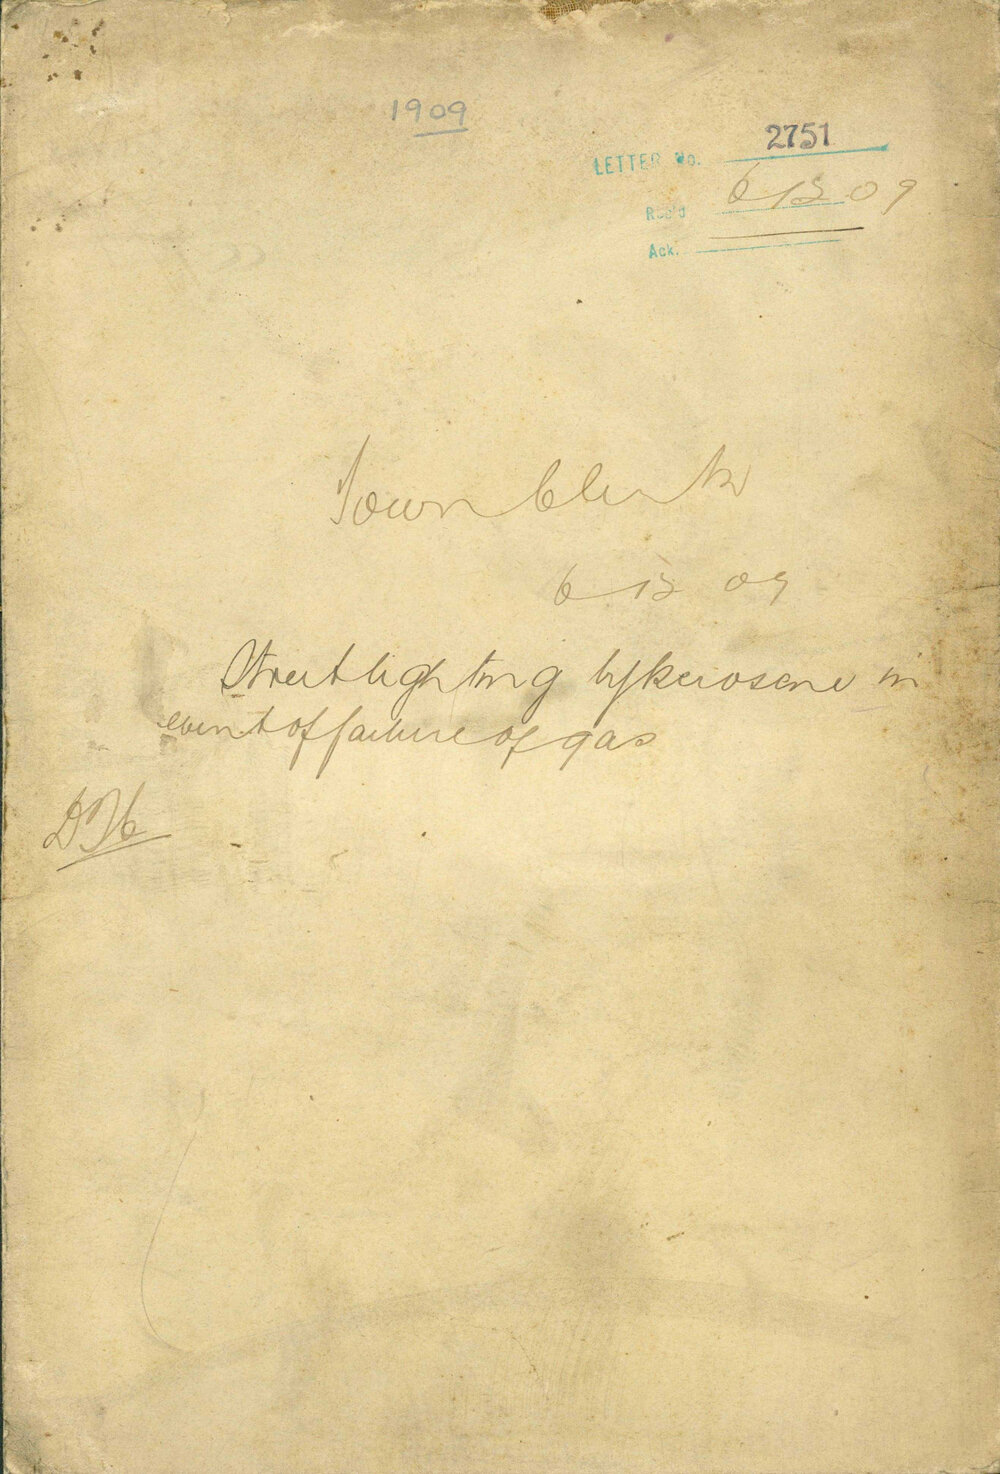 1909
LETTER No. 2751
Rec'd 6 12 09
Ack.
Town Clerk
6 12 09
Street lighting by kerosene in
event of failure of gas